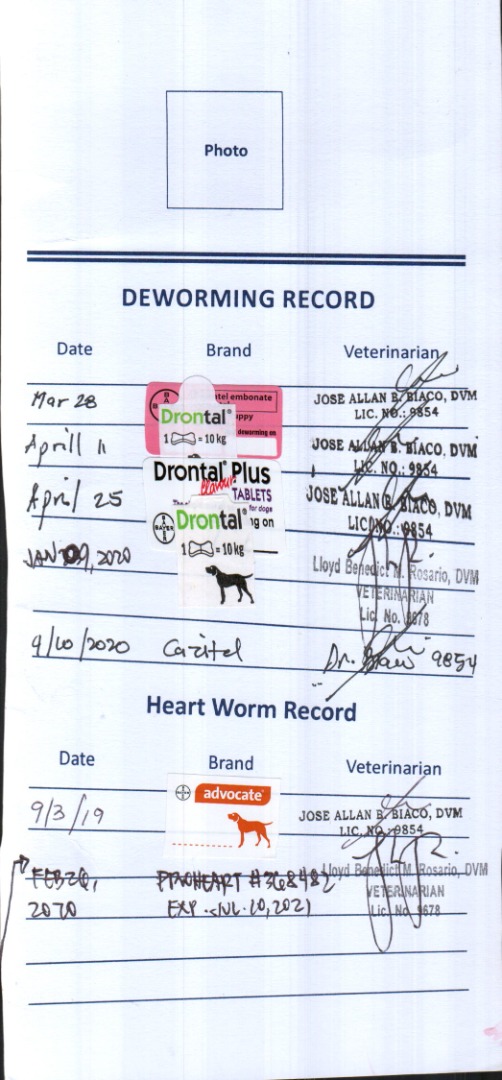 Photo
DEWORMING RECORD
Date Brand Veterinarian
Mar 28
tel embonate
ppy
deworming on
Drontal®
1 = 10 kg
JOSE ALLAN B. BIACO, DVM
LIC. NO.: 9854
Aprill 11
JOSE ALLAN B. BIACO, DVM
LIC. NO.: 9854
Drontal Plus
flavour
TABLETS
for dogs
ng on
April 25
BAYER
Drontal®
1 = 10 kg
JOSE ALLAN B. BIACO, DVM
LIC. NO.: 9854
JAN 09, 2020
Lloyd Benedict M. Rosario, DVM
VETERINARIAN
Lic. No. 9678
9/10/2020 Dr. Biaco 9854
Heart Worm Record
Date Brand Veterinarian
9/3/19
advocate®
JOSE ALLAN B. BIACO, DVM
LIC. NO.: 9854
FEB 20, PROHEART #368482 Lloyd Benedict M. Rosario, DVM
VETERINARIAN
2020 EXP. JUL. 20, 2021 Lic. No. 9678